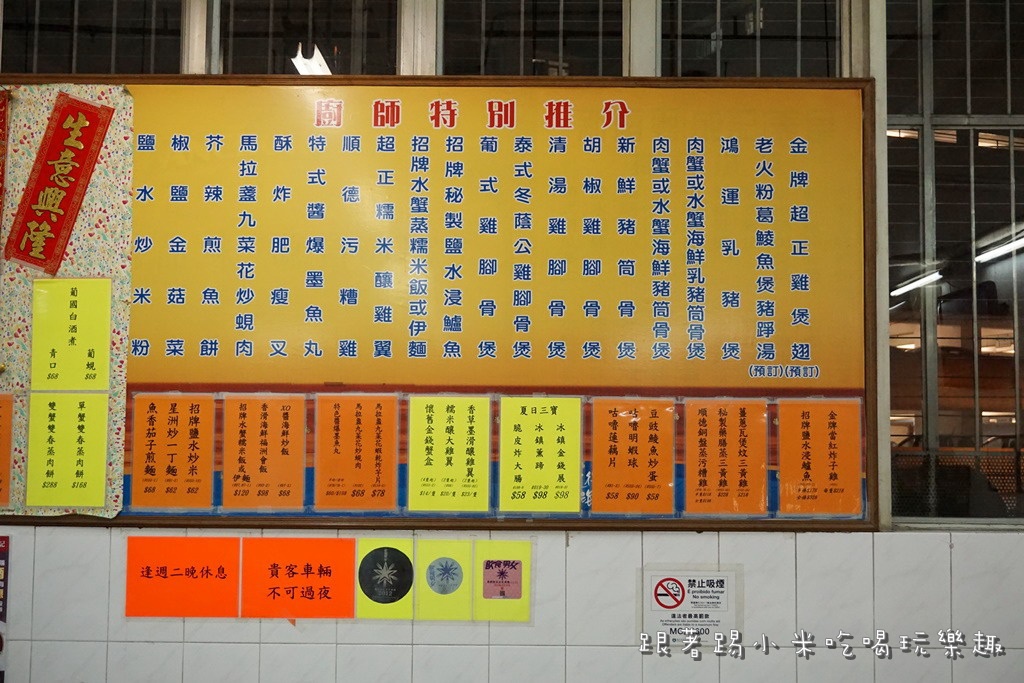 廚師特別推介
金牌超正雞煲翅
(預訂)
老火粉葛鯪魚煲豬踭湯
(預訂)
鴻運乳豬煲
肉蟹或水蟹海鮮乳豬筒骨煲
肉蟹或水蟹海鮮豬筒骨煲
新鮮豬筒骨煲
胡椒雞腳骨煲
清湯雞腳骨煲
泰式冬蔭公雞腳骨煲
葡式雞腳骨煲
招牌秘製鹽水浸鱸魚
招牌水蟹蒸糯米飯或伊麵
超正糯米釀雞翼
順德污糟雞
特式醬爆墨魚丸
酥炸肥瘦叉
馬拉盞九菜花炒蜆肉
芥辣煎魚餅
椒鹽金菇菜
鹽水炒米粉
生意興隆
葡國白酒煮
葡蜆
$68
青口
$68
單蟹雙春蒸肉餅
$168
雙蟹雙春蒸肉餅
$288
招牌鹽水炒米
$62
星洲炒一丁麵
$62
魚香茄子煎麵
$68
XO醬海鮮炒飯
$68
香滑海鮮福洲會飯
$98
招牌水蟹糯米飯或伊麵
$120
馬拉盞九菜花蝦乾炸芋片
$78
馬拉盞九菜花炒燒肉
$68
特色醬爆墨魚丸
香草墨滑釀雞翼
糯米釀大雞翼
懷舊金錢蟹盒
夏日三寶
冰鎮金錢展
$98
冰鎮薰蹄
$98
脆皮炸大腸
$58
豆豉鯪魚炒蛋
$58
咕嚕明蝦球
$90
咕嚕蓮藕片
$58
薑蔥瓦煲炆三黃雞
秘製藥膳蒸三黃雞
順德銅盤蒸污糟雞
金牌當紅炸子雞
招牌鹽水浸鱸魚
逢週二晚休息
貴客車輛
不可過夜
飲食男女
禁止吸煙
É proibido fumar
No smoking
跟著踢小米吃喝玩樂趣